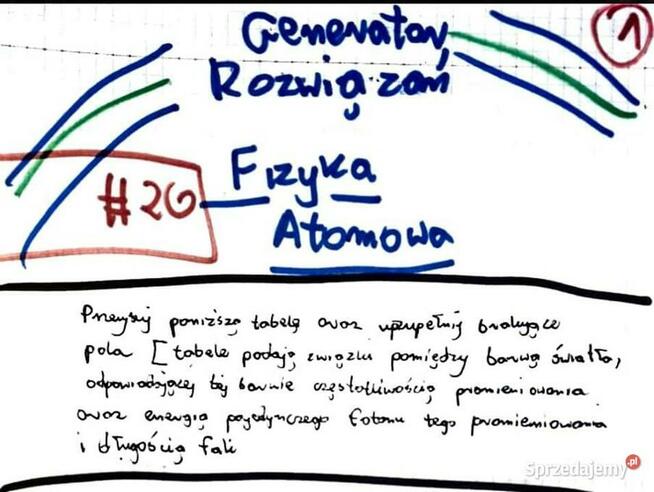 Generator
1
Rozwiązań
#26
Fizyka
Atomowa
Przerysuj poniższą tabelę oraz uzupełnij brakujące
pola [tabele podają związki pomiędzy barwą światła,
odpowiadającej tej barwie częstotliwością promieniowania
oraz energią pojedynczego fotonu tego promieniowania
i długością fali
Sprzedajemy.pl